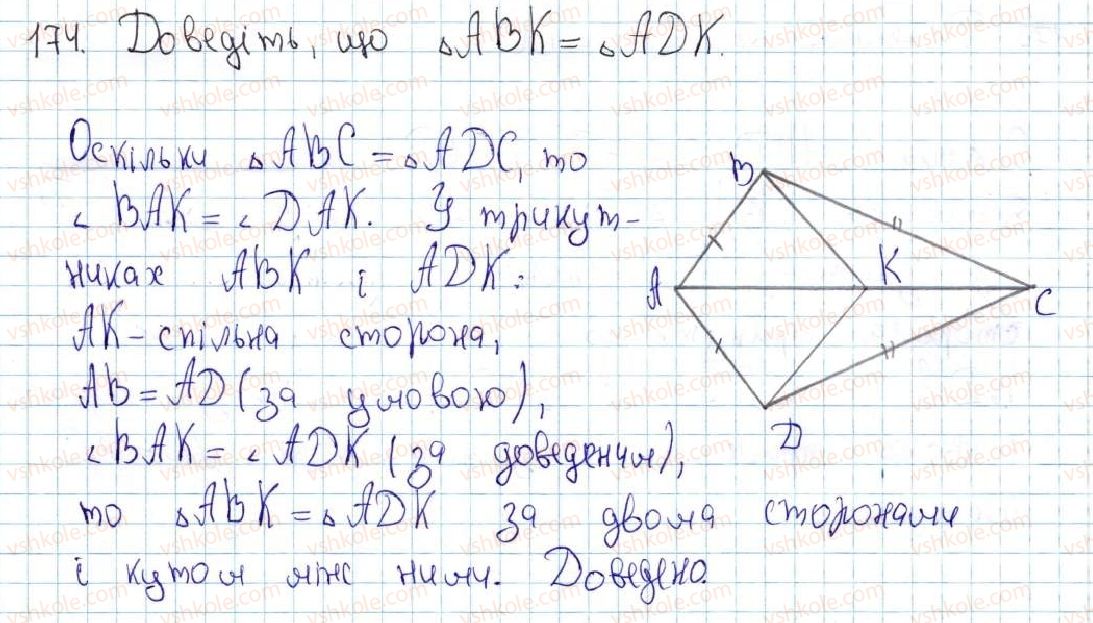 174. Доведіть, що △ABK = △ADK.
Оскільки △ABC = △ADC, то
∠BAK = ∠DAK. У трикут-
никах ABK і ADK:
AK - спільна сторона,
AB = AD (за умовою),
∠BAK = ∠ADK (за доведеним),
то △ABK = △ADK за двома сторонами
і кутом між ними. Доведено.
B
K
A
C
D
vshkole.com